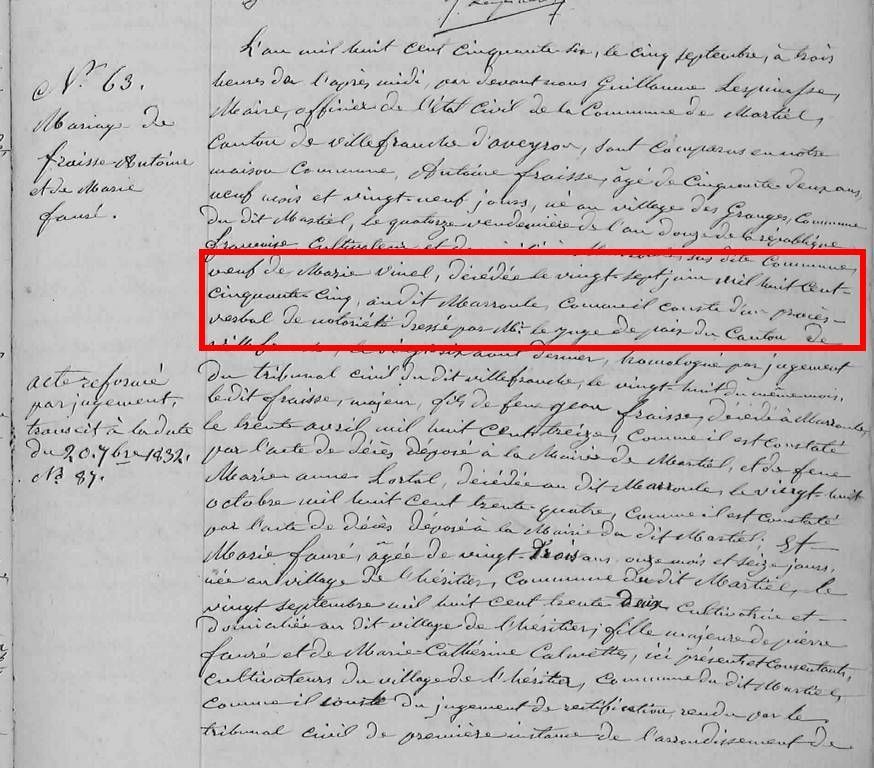 N° 63.
Mariage de
fraisse Antoine
et de Marie
fauré.
acte reformé
par jugement,
transcit à la date
du 20. 7bre 1832.
N° 87.
L'an mil huit cent cinquante six, le cinq septembre, à trois
heures de l'après midi, par devant nous Guillaume Lespinasse,
Maire, officier de l'état Civil de la Commune de Martiel,
Canton de villefranche d'aveyron, sont Comparus en notre
maison Commune, Antoine fraisse, âgé de Cinquante deux ans,
neuf mois et vingt-neuf jours, né au village des Granges, Commune
du dit Martiel, le quatorze vendemiaire de l'an douze de la république
française, Cultivateur et sus dite Commune,
veuf de Marie vinel, décédée le vingt-sept juin mil huit Cent-
Cinquante-Cinq, au dit Marroule, comme il conste d'un procès-
verbal de notoriété dressé par Mr. le juge de paix du Canton de
le vingt six aout dernier, homologué par jugement
du tribunal civil du dit villefranche, le vingt-huit du même mois,
le dit fraisse, majeur, fils de feu jean fraisse, décédé à Marroule,
le trente avril mil huit Cent treize, Comme il est Constaté
par l'acte de décès déposé à la Mairie de Martiel, et de feue
Marie anne Lortal, décédée au dit Marroule, le vingt-huit
octobre mil huit cent trente-quatre, comme il est constaté
par l'acte de décès déposé à la Mairie du dit Martiel; Et-
Marie fauré, âgée de vingt-trois ans, onze mois et seize jours,
née au village de l'héritier, Commune du dit Martiel, le
vingt septembre mil huit Cent trente deux, Cultivatrice et-
domiciliée au dit village de l'héritier, fille majeure de pierre
fauré et de Marie-Catherine Calmettes, ici présents et Consentants,
Cultivateurs du village de l'héritier, Commune du dit Martiel,
Comme il conste du jugement de rectification, rendu par le
tribunal civil de première instance de l'arrondissement de